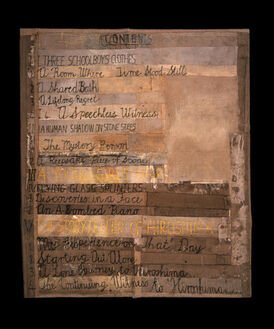 CONTENTS
1. THREE SCHOOLBOYS' CLOTHES
A Room Where Time Stood Still
A Shared Bath
A Lifelong Regret
A Speechless Witness
A HUMAN SHADOW ON STONE STEPS
The Mystery Person
A Keepsake Piece of Stone
FLYING GLASS SPLINTERS
Discoveries in a Face
On A Bombed Piano
OF HIROSHIMA
The Experience on "That" Day
Starting Out Alone
A Lone Journey to Hiroshima
The Continuing Witness to Hiroshima